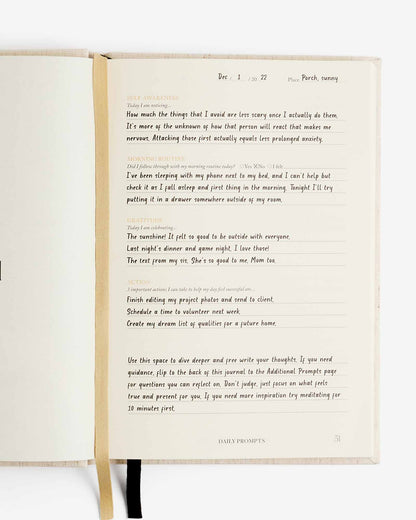 Dec / 1 / 20 22 Place Porch, sunny
SELF-AWARENESS
Today I am noticing...
How much the things that I avoid are less scary once I actually do them.
It's more of the unknown of how that person will react that makes me
nervous. Attacking those first actually equals less prolonged anxiety.
MORNING ROUTINE
Did I follow through with my morning routine today? Yes No
I've been sleeping with my phone next to my bed, and I can't help but
check it as I fall asleep and first thing in the morning. Tonight I'll try
putting it in a drawer somewhere outside of my room.
GRATITUDE
Today I am celebrating...
The sunshine! It felt so good to be outside with everyone.
Last night's dinner and game night. I love those!
The text from my sis. She's so good to me. Mom too.
ACTION
3 important actions I can take to help my day feel successful are...
Finish editing my project photos and send to client.
Schedule a time to volunteer next week.
Create my dream list of qualities for a future home.
Use this space to dive deeper and free write your thoughts. If you need
guidance, flip to the back of this journal to the Additional Prompts page
for questions you can reflect on. Don't judge, just focus on what feels
true and present for you. If you need more inspiration try meditating for
10 minutes first.
DAILY PROMPTS 51